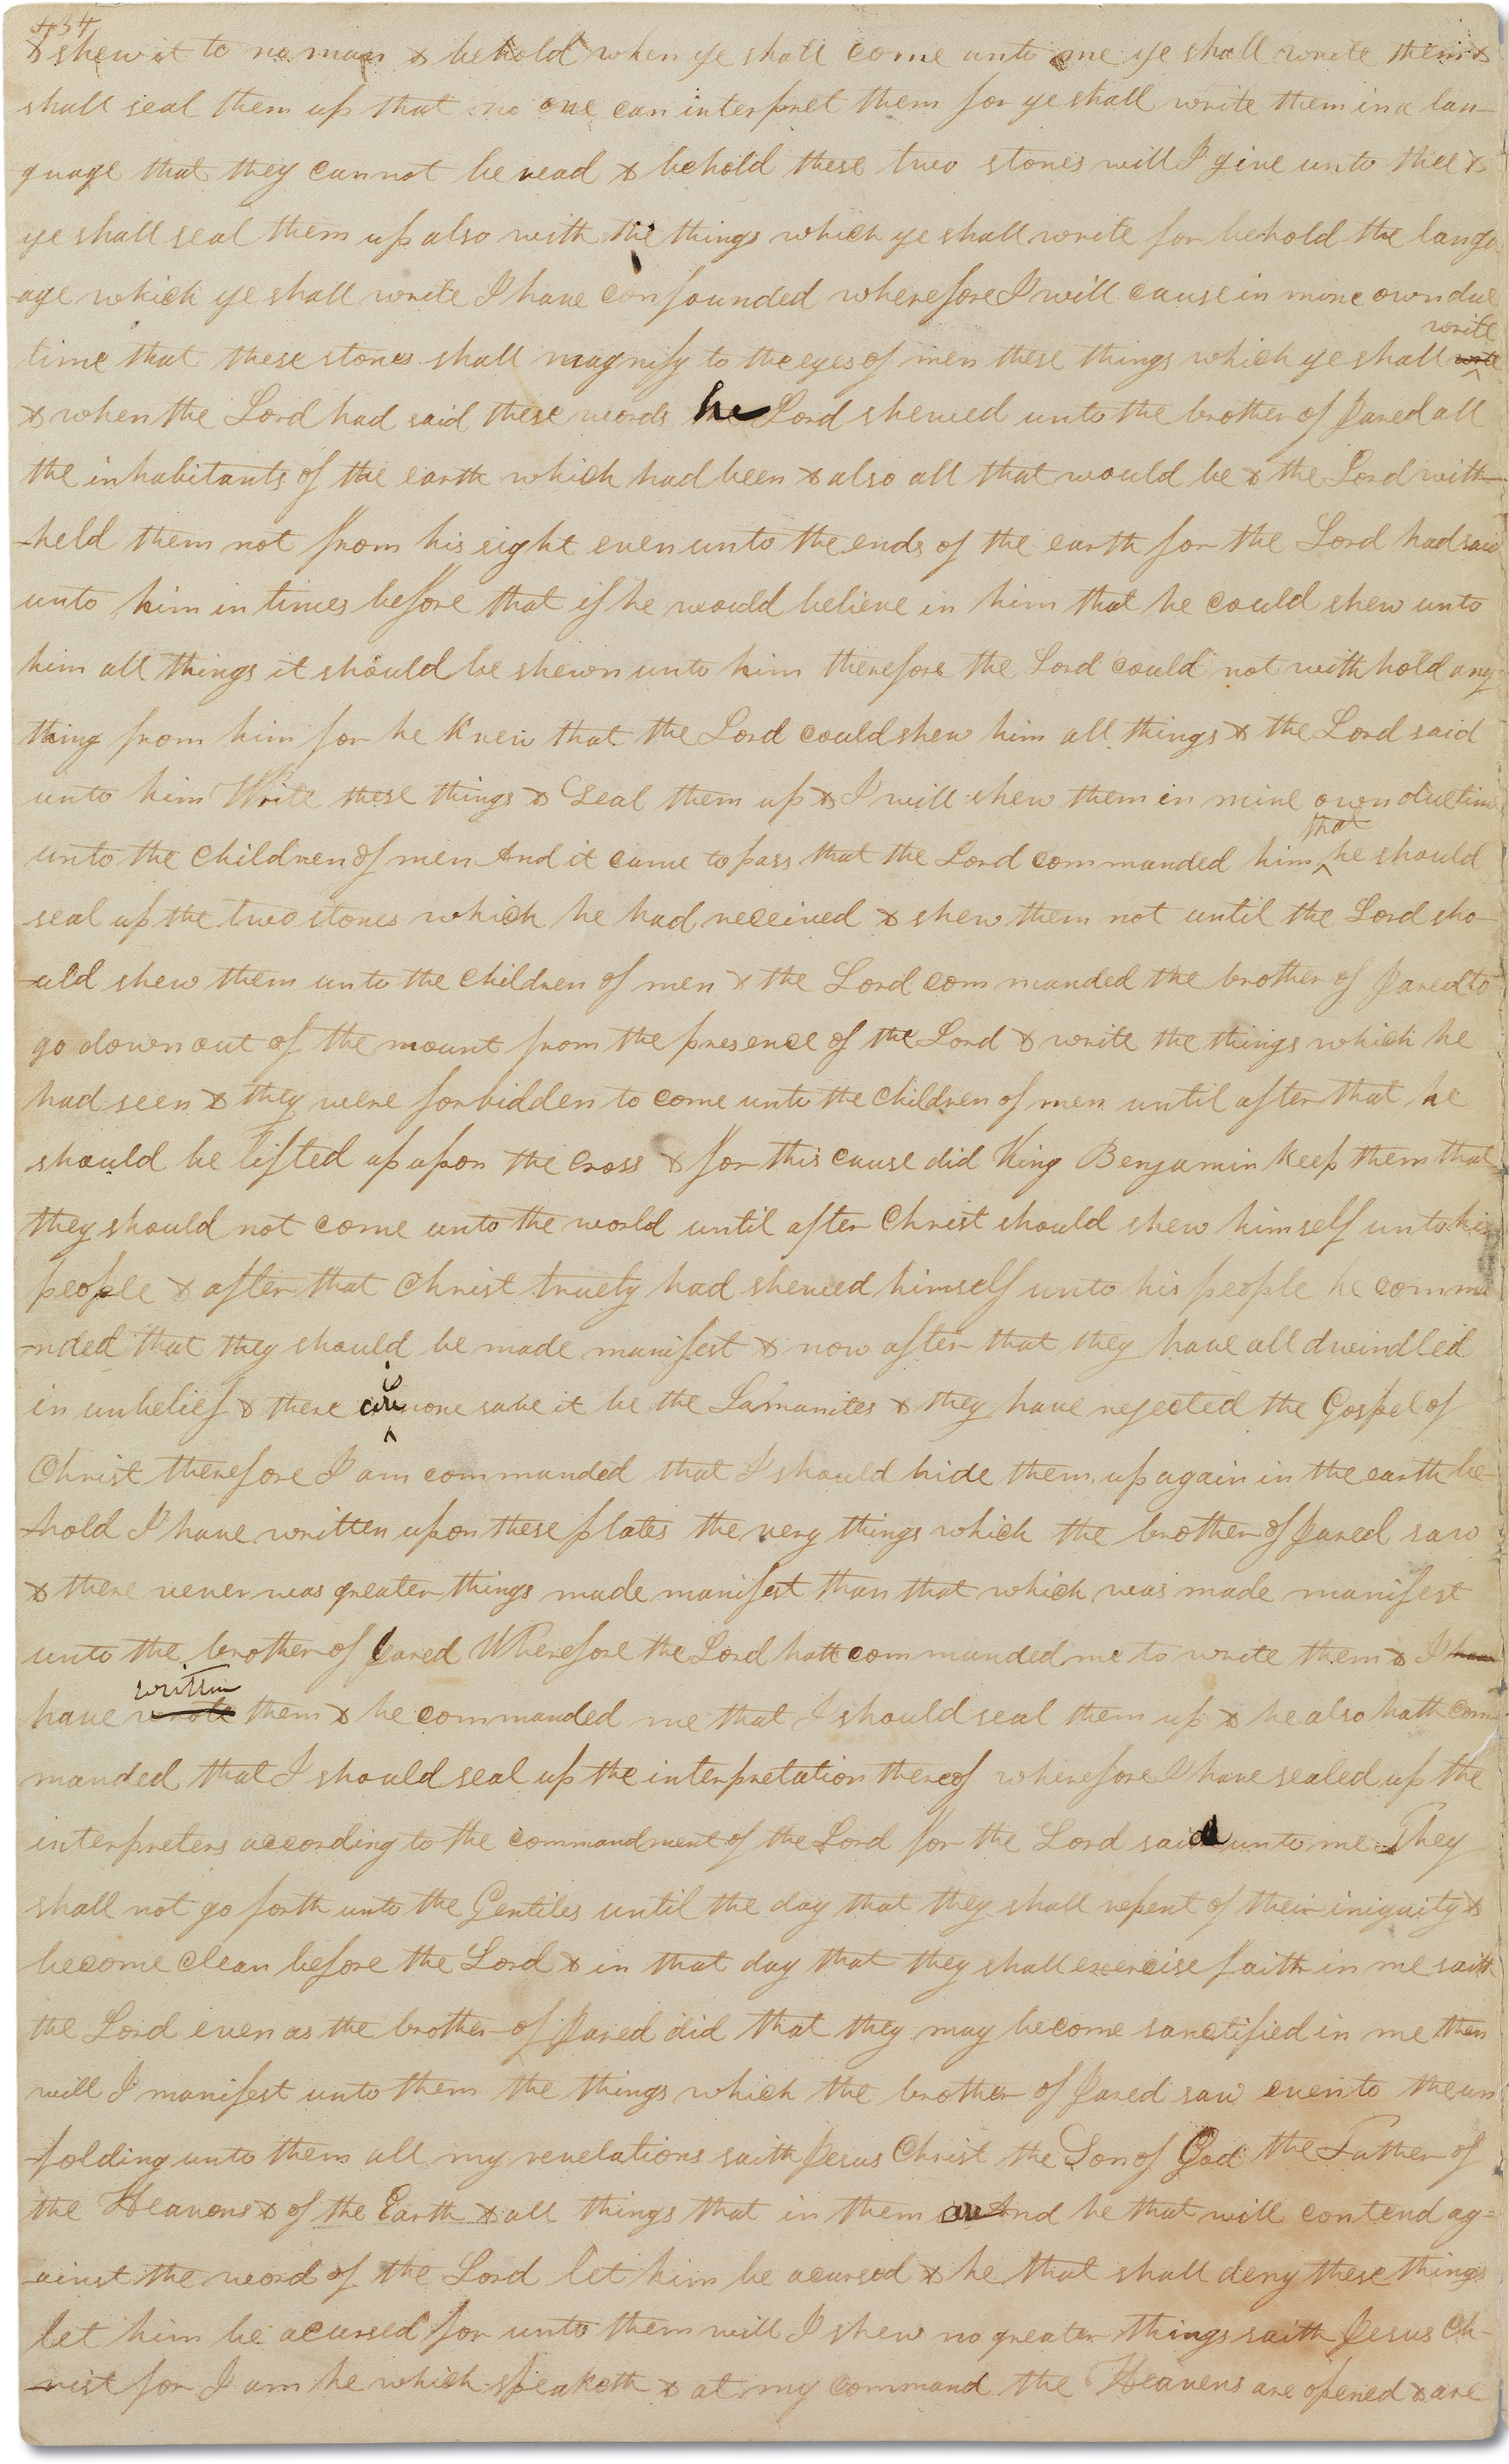 434
& shew it to no man & behold when ye shall come unto me ye shall write them &
shall seal them up that no one can interpret them for ye shall write them in a lan-
guage that they cannot be read & behold these two stones will I give unto thee &
ye shall seal them up also with the things which ye shall write for behold the langu
-age which ye shall write I have confounded wherefore I will cause in mine own due
write
time that these stones shall magnify to the eyes of men these things which ye shall
& when the Lord had said these words he Lord shewed unto the brother of Jared all
the inhabitants of the earth which had been & also all that would be & the Lord with-
-held them not from his sight even unto the ends of the earth for the Lord had said
unto him in times before that if he would believe in him that he could shew unto
him all things it should be shewn unto him therefore the Lord could not with hold any
thing from him for he knew that the Lord could shew him all things & the Lord said
unto him Write these things & Seal them up & I will shew them in mine own due time
that
unto the children of men And it came to pass that the Lord commanded him ^ he should
seal up the two stones which he had received & shew them not until the Lord sho-
-uld shew them unto the children of men & the Lord commanded the brother of Jared to
go down out of the mount from the presence of the Lord & write the things which he
had seen & they were forbidden to come unto the children of men until after that he
should be lifted up upon the cross & for this cause did King Benjamin keep them that
they should not come unto the world until after Christ should shew himself unto his
people & after that Christ truely had shewed himself unto his people he comma
-nded that they should be made manifest & now after that they have all dwindled
is
in unbelief & there are ^ none save it be the Lamanites & they have rejected the Gospel of
Christ therefore I am commanded that I should hide them up again in the earth be-
-hold I have written upon these plates the very things which the brother of Jared saw
& there never was greater things made manifest than that which was made manifest
unto the brother of Jared Wherefore the Lord hath commanded me to write them & I have
written
have wrote them & he commanded me that I should seal them up & he also hath com-
manded that I should seal up the interpretation thereof wherefore I have sealed up the
interpreters according to the commandment of the Lord for the Lord said unto me They
shall not go forth unto the Gentiles until the day that they shall repent of their iniquity &
become clean before the Lord & in that day that they shall exercise faith in me saith
the Lord even as the brother of Jared did that they may become sanctified in me then
will I manifest unto them the things which the brother of Jared saw even to the un
-folding unto them all my revelations saith Jesus Christ the Son of God the Father of
the Heavens & of the Earth & all things that in them are And he that will contend ag=
-ainst the word of the Lord let him be acursed & he that shall deny these things
let him be acursed for unto them will I shew no greater things saith Jesus Ch-
-rist for I am he which speaketh & at my command the Heavens are opened & are